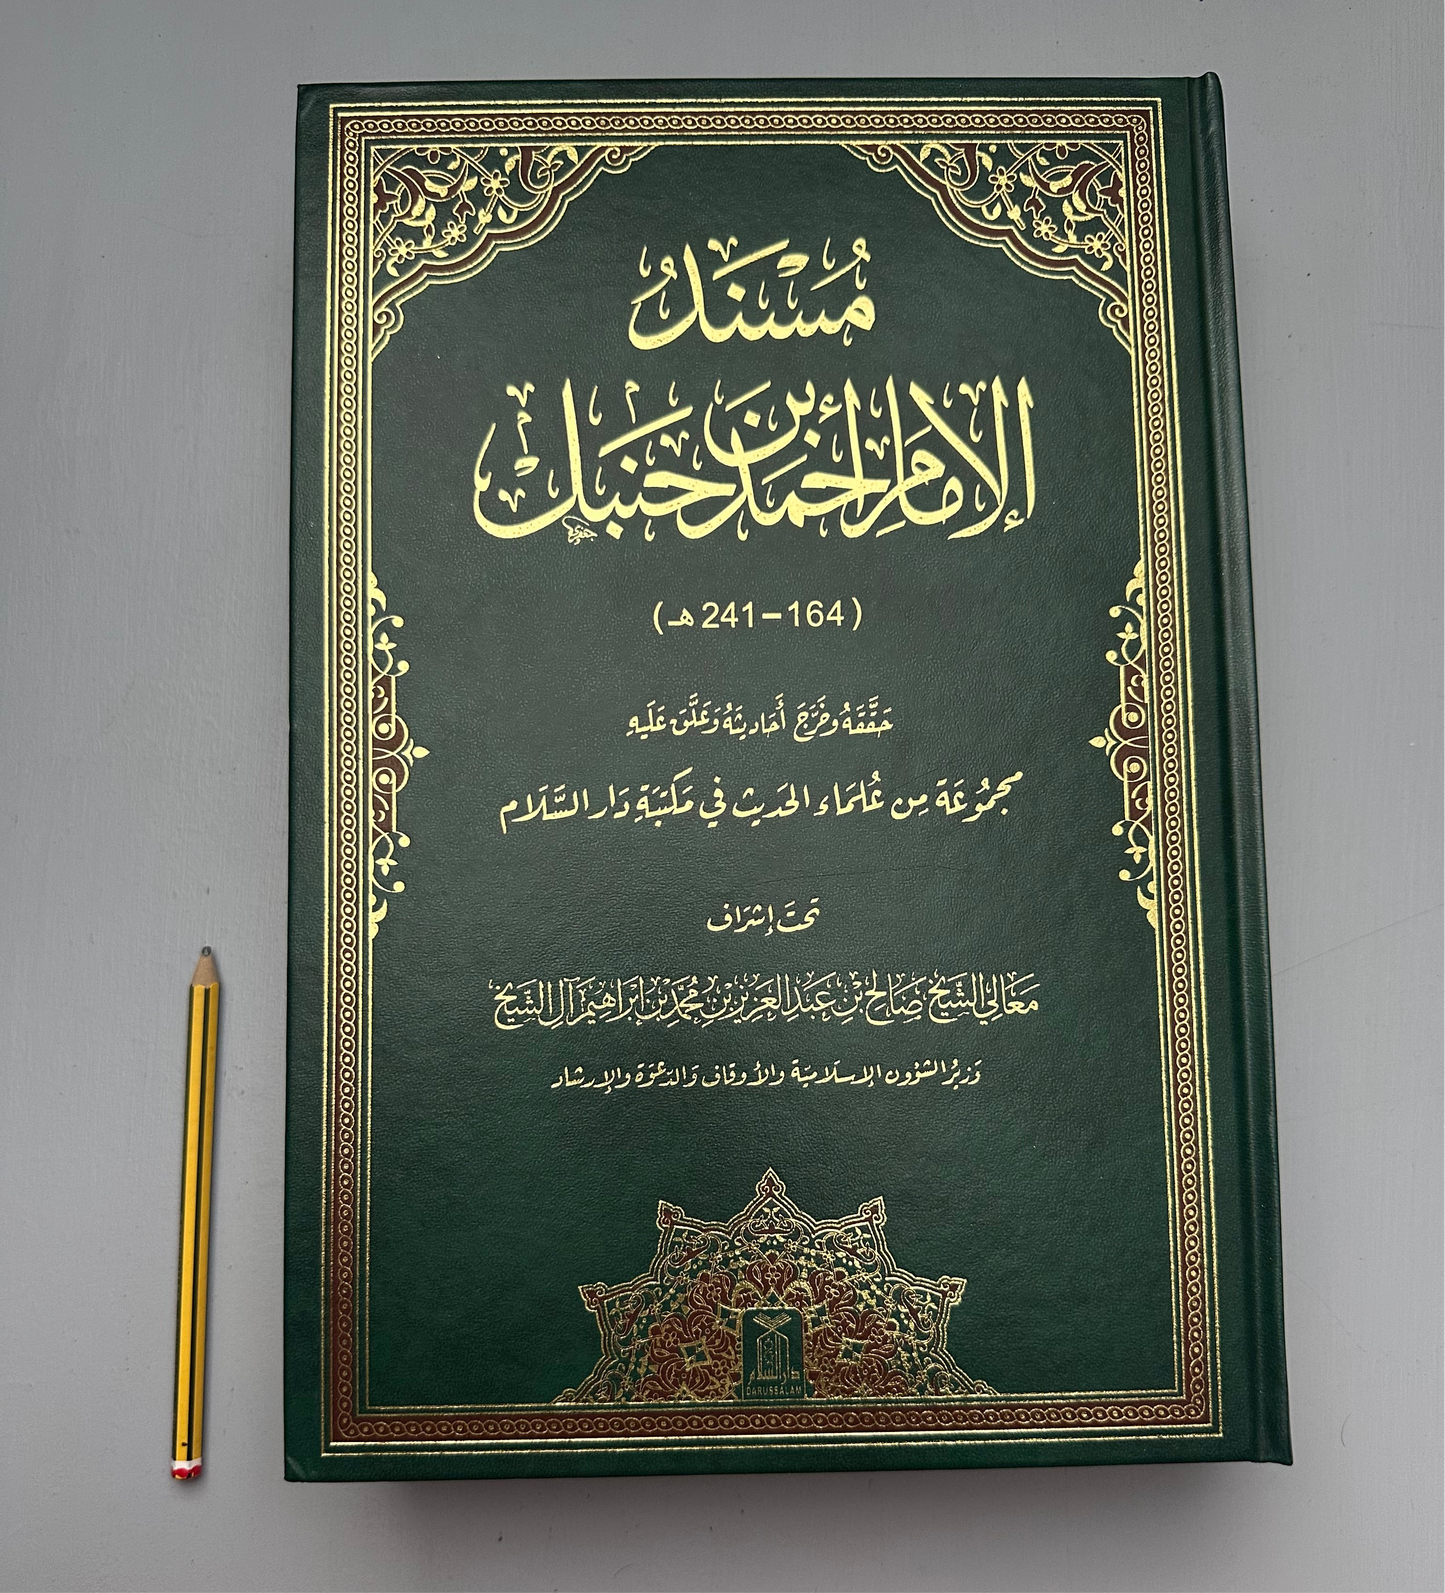 مُسْنَدُ
الإِمَامِ أَحْمَدَ بْنِ حَنْبَلٍ
(164-241هـ)
حَقَّقَهُ وَخَرَّجَ أَحَادِيثَهُ وَعَلَّقَ عَلَيهِ
مجمُوعَة مِن عُلمَاء الحَديث في مَكتبَةِ دَار السَّلَام
تحتَ إشرَاف
مَعَالي الشَّيخ صَالح بْن عَبد العَزيز بْن مُحَمَّد بْن إبْرَاهيم آل الشَّيخ
وَزيرُ الشؤون الإسلاميّة والأوقاف وَالدّعوَة والإرشاد
دار السلام
DARUSSALAM